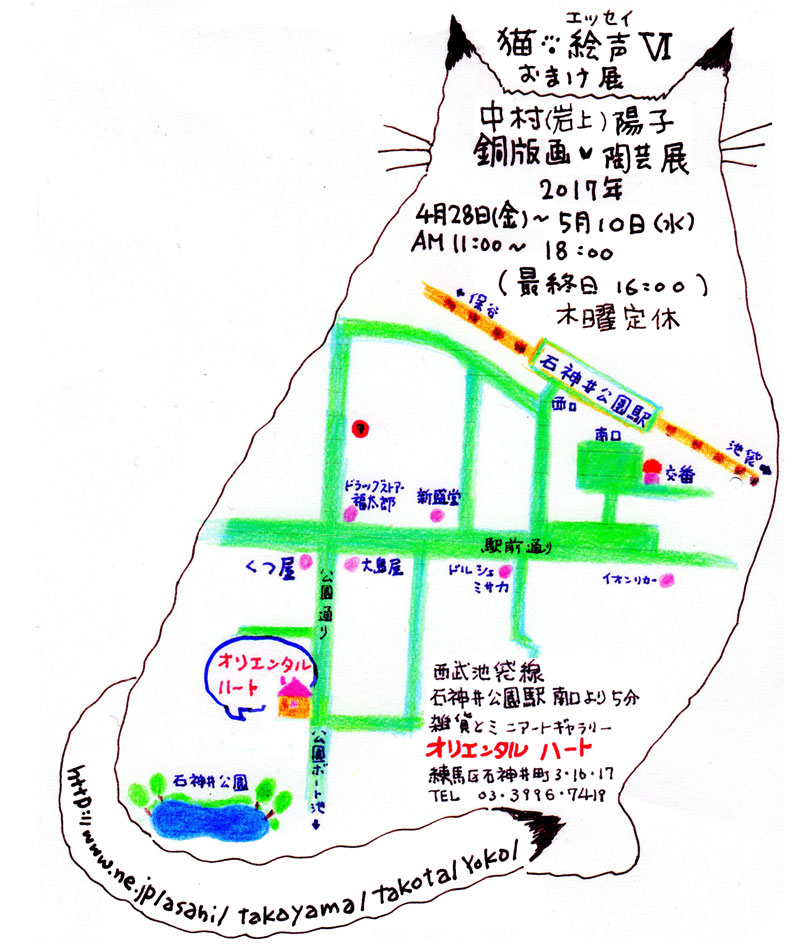 エッセイ
猫∵絵声Ⅵ
おまけ展
中村(岩上)陽子
銅版画♥陶芸展
2017年
4月28日(金)~5月10日(水)
AM11:00~18:00
(最終日 16:00)
木曜定休
保谷
石神井公園駅
西口
南口
池袋
交番
ドラッグストアー
福太郎
新盛堂
駅前通り
くつ屋
大島屋
ドルシェ
ミサカ
イオンリカー
公園通り
オリエンタル
ハート
西武池袋線
石神井公園駅南口より5分
雑貨とミニアートギャラリー
オリエンタル ハート
練馬区石神井町3・16・17
TEL 03・3996・7419
公園ボート池
石神井公園
http://www.ne.jp/asahi/takoyama/takota/Yoko/